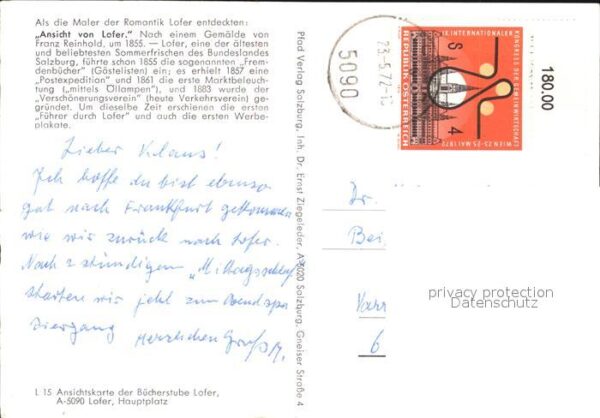 Als die Maler der Romantik Lofer entdeckten:
„Ansicht von Lofer." Nach einem Gemälde von
Franz Reinhold, um 1855. — Lofer, eine der ältesten
und beliebtesten Sommerfrischen des Bundeslandes
Salzburg, führte schon 1855 die sogenannten „Frem-
denbücher" (Gästelisten) ein; es erhielt 1857 eine
„Postexpedition" und 1861 die erste Marktbeleuch-
tung („mittels Öllampen"), und 1883 wurde der
„Verschönerungsverein" (heute Verkehrsverein) ge-
gründet. Um dieselbe Zeit erschienen die ersten
"Führer durch Lofer" und auch die ersten Werbe-
plakate.
Lieber Klaus!
Ich hoffe du bist ebenso
gut nach Frankfurt gekommen
wie wir zurück nach Lofer.
Nach 2 stündigem „Mittagsschlaf
starten wir jetzt zum Abendspa
ziergang Herzlichen Gruß
L 15 Ansichtskarte der Bücherstube Lofer,
A-5090 Lofer, Hauptplatz
Pfad Verlag Salzburg, Inh. Dr. Ernst Ziegeleder, A-5020 Salzburg, Gneiser Straße 4
5090
23.5.72-15
IX. INTERNATIONALER
KONGRESS DER
WIEN 23-25 MAI 1972
REPUBLIK ÖSTERREICH
S 4
180.00
Dr.
Bei
6
privacy protection
Datenschutz